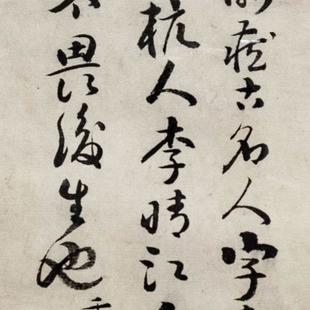 藏古名人字
杭人李晴江
不畏後生也